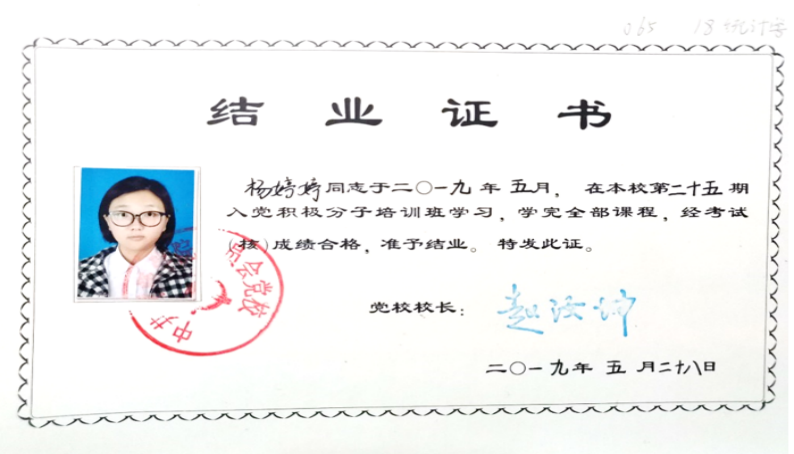 065 18统计学
结业证书
杨婷婷同志于二〇一九年五月，在本校第二十五期
入党积极分子培训班学习，学完全部课程，经考试
(核)成绩合格，准予结业。特发此证。
党校校长：
二〇一九年五月二十八日
中共
员会党校